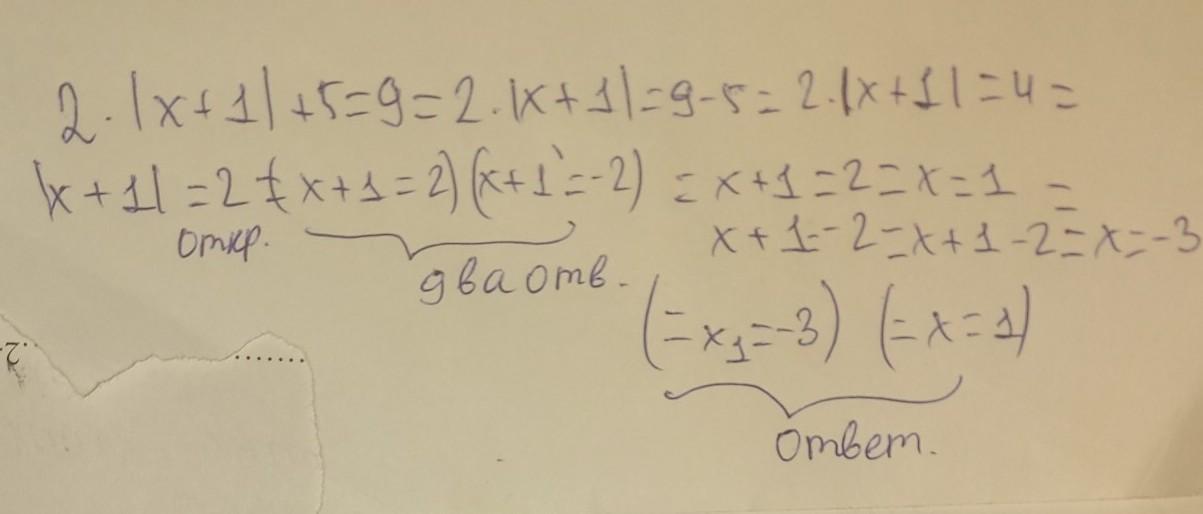 2·|x+1|+5=9=2·|x+1|=9-5=2·|x+1|=4=
|x+1|=2=(x+1=2)(x+1=-2)=x+1=2=x=1=
x+1=-2=x+1-2=x=-3
откр.
два отв.
(=x₁=-3) (=x=1)
ответ.